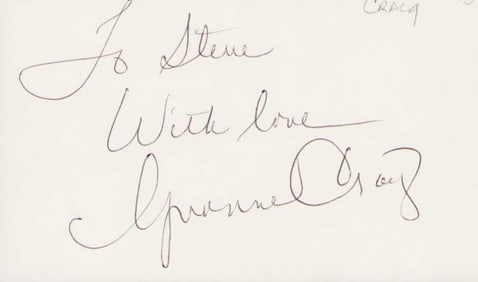 CRAIG
To Steve
With love
Yvonne Craig